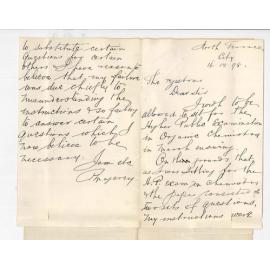 North Terrace
City
16.12.98.
The registrar
Dear Sir
I wish to be
allowed to sit for the
Higher Public Examination
in Organic Chemistry
in March ensuing.
On the grounds, that
as I was sitting for the
H.P. exam in chemistry
& the paper consisted of
two sets of questions,
my instructions were
to substitute certain
questions for certain
others. I have reason to
believe that my failure
was due chiefly to
misunderstanding the
instructions & so failing
to answer certain
questions which I
now believe to be
necessary.
I am etc